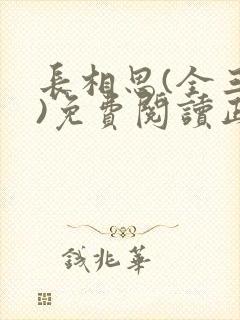 長相思(全三
)免費閱讀正
錢兆華